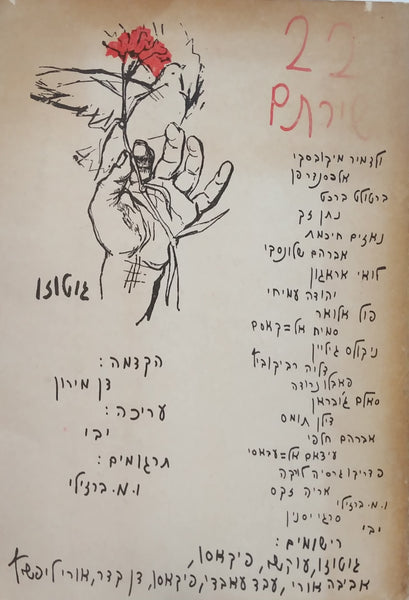 22
שירתם
ולדמיר מיקובסקי
אלכסנדר פן
ברטולט ברכט
נתן זך
נאזים חיכמת
אברהם שלונסקי
לואי אראגון
יהודה עמיחי
פול אלואר
סמיח אל=קאסם
ניקולס גיליין
דליה רביקוביץ
פאבלו נרודה
סאלם ג'ובראן
דילן תומס
אברהם חלפי
עיצאם אל=עבאסי
פדריקו גרסיה לורקה
אריה זקס
ו.מ.ברזילי
סרגי יסנין
יבי
גוטוזו
הקדמה:
דן מירון
עריכה:
יבי
תרגומים:
ו.מ.ברזילי
רישומים:
גוטוזו, עוקשי, פיקאסו,
אביבה אורי, עבד עאבדי, פיקאסו, דן קדר, אורי ליפשיץ